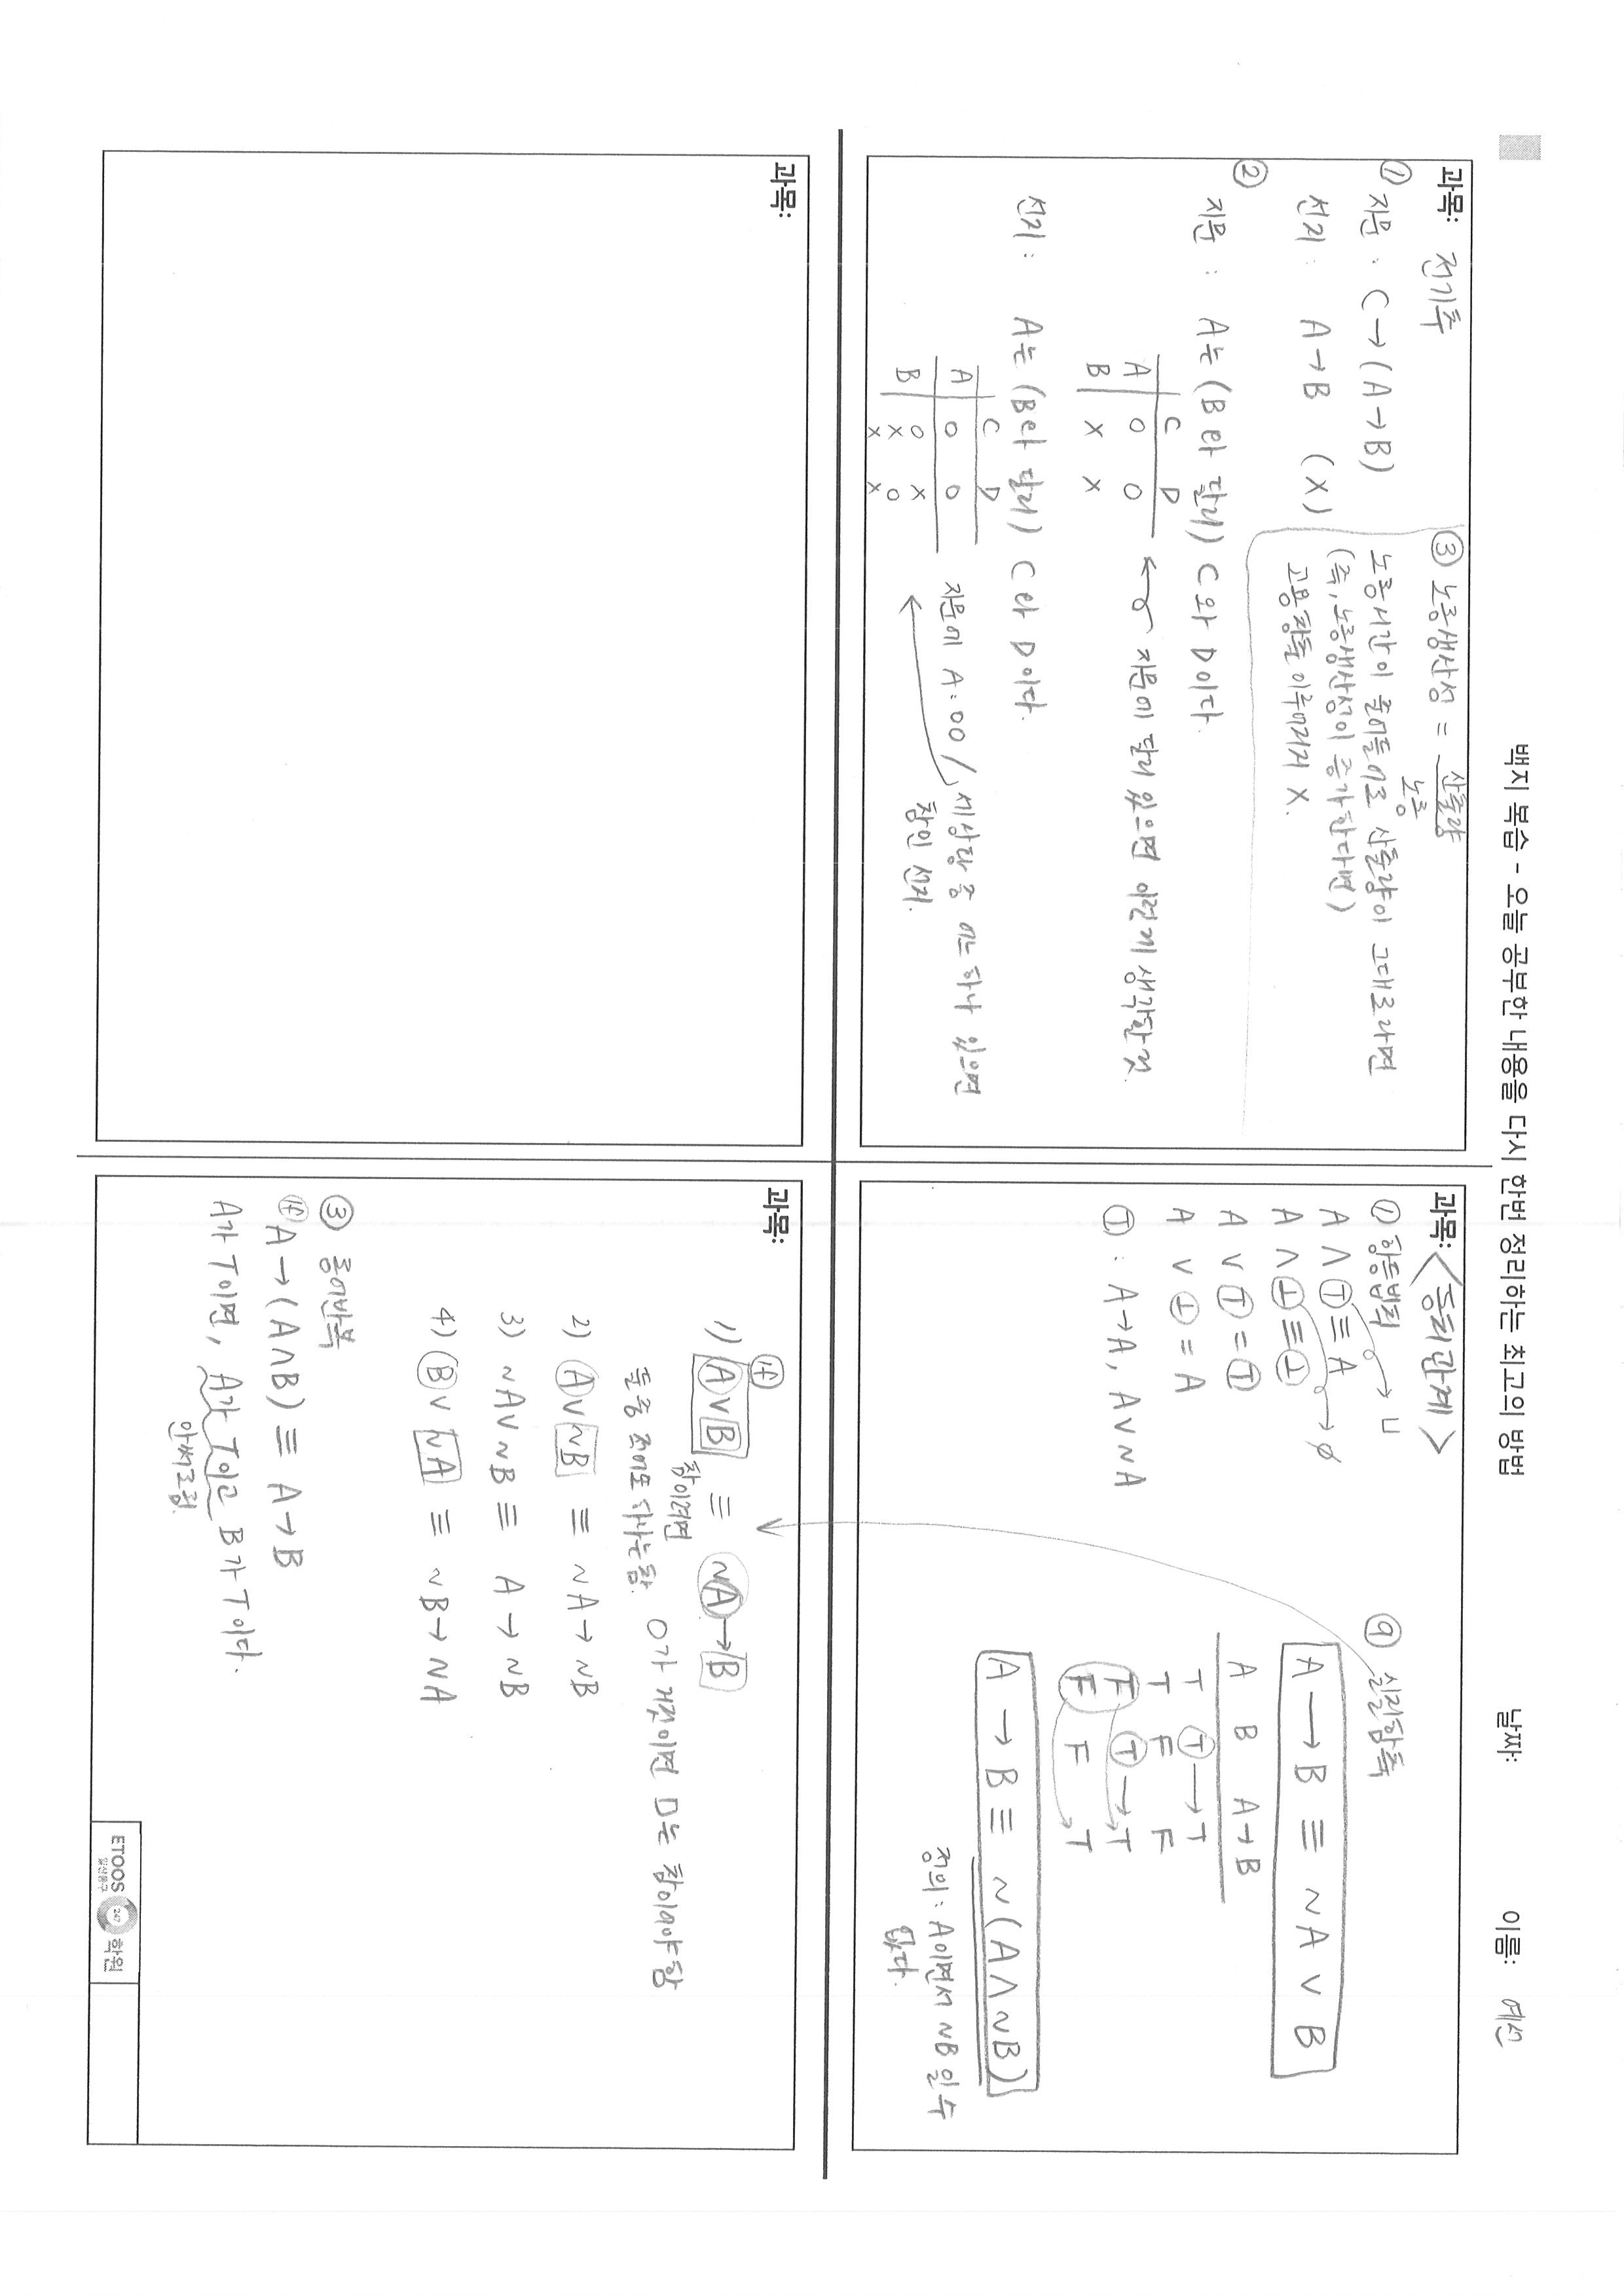 백지 복습 - 오늘 공부한 내용을 다시 한번 정리하는 최고의 방법
날짜:
이름: 예선
과목: 전기추
① 지문 : C→(A→B)
선지 : A→B (X)
② 지문 : A는 (B와 달리) C와 D이다.
C D
A O O
B X X
지문에 달리 있으면 이렇게 생각할 것.
선지 : A는 (B와 달리) C와 D이다.
C D
A O O
B O X
X O
X X
지문에 A:OO / 세상황 중 어느 하나 있으면
참인 선지.
③ 노동생산성 = 산출량
노동
노동시간이 줄어들어도 산출량이 그대로라면
(즉, 노동생산성이 증가한다면)
고용창출 이루어지지 X.
과목: <동치관계>
① 항등법칙
A ∧ Ⓣ ≡ A → U
A ∧ ⊥ ≡ ⊥ → ∅
A ∨ Ⓣ = Ⓣ
A ∨ ⊥ = A
Ⓣ : A→A, A∨~A
② 실질함축
A → B ≡ ~A ∨ B
A B A→B
T T → T
T F F
F T → T
F F T
A → B ≡ ~(A∧~B)
정의 : A이면서 ~B일 수
없다.
과목:
과목:
1) A∨B ≡ ~A→B
참이려면
둘중 적어도 하나는 참. O가 거짓이면 □는 참이어야 함
2) A∨~B ≡ ~A→~B
3) ~A∨~B ≡ A→~B
4) B∨~A ≡ ~B→~A
③ 동어반복
A→(A∧B) ≡ A→B
A가 T이면, A가 T이고 B가 T이다.
안써도됨.
ETOOS 247 학원